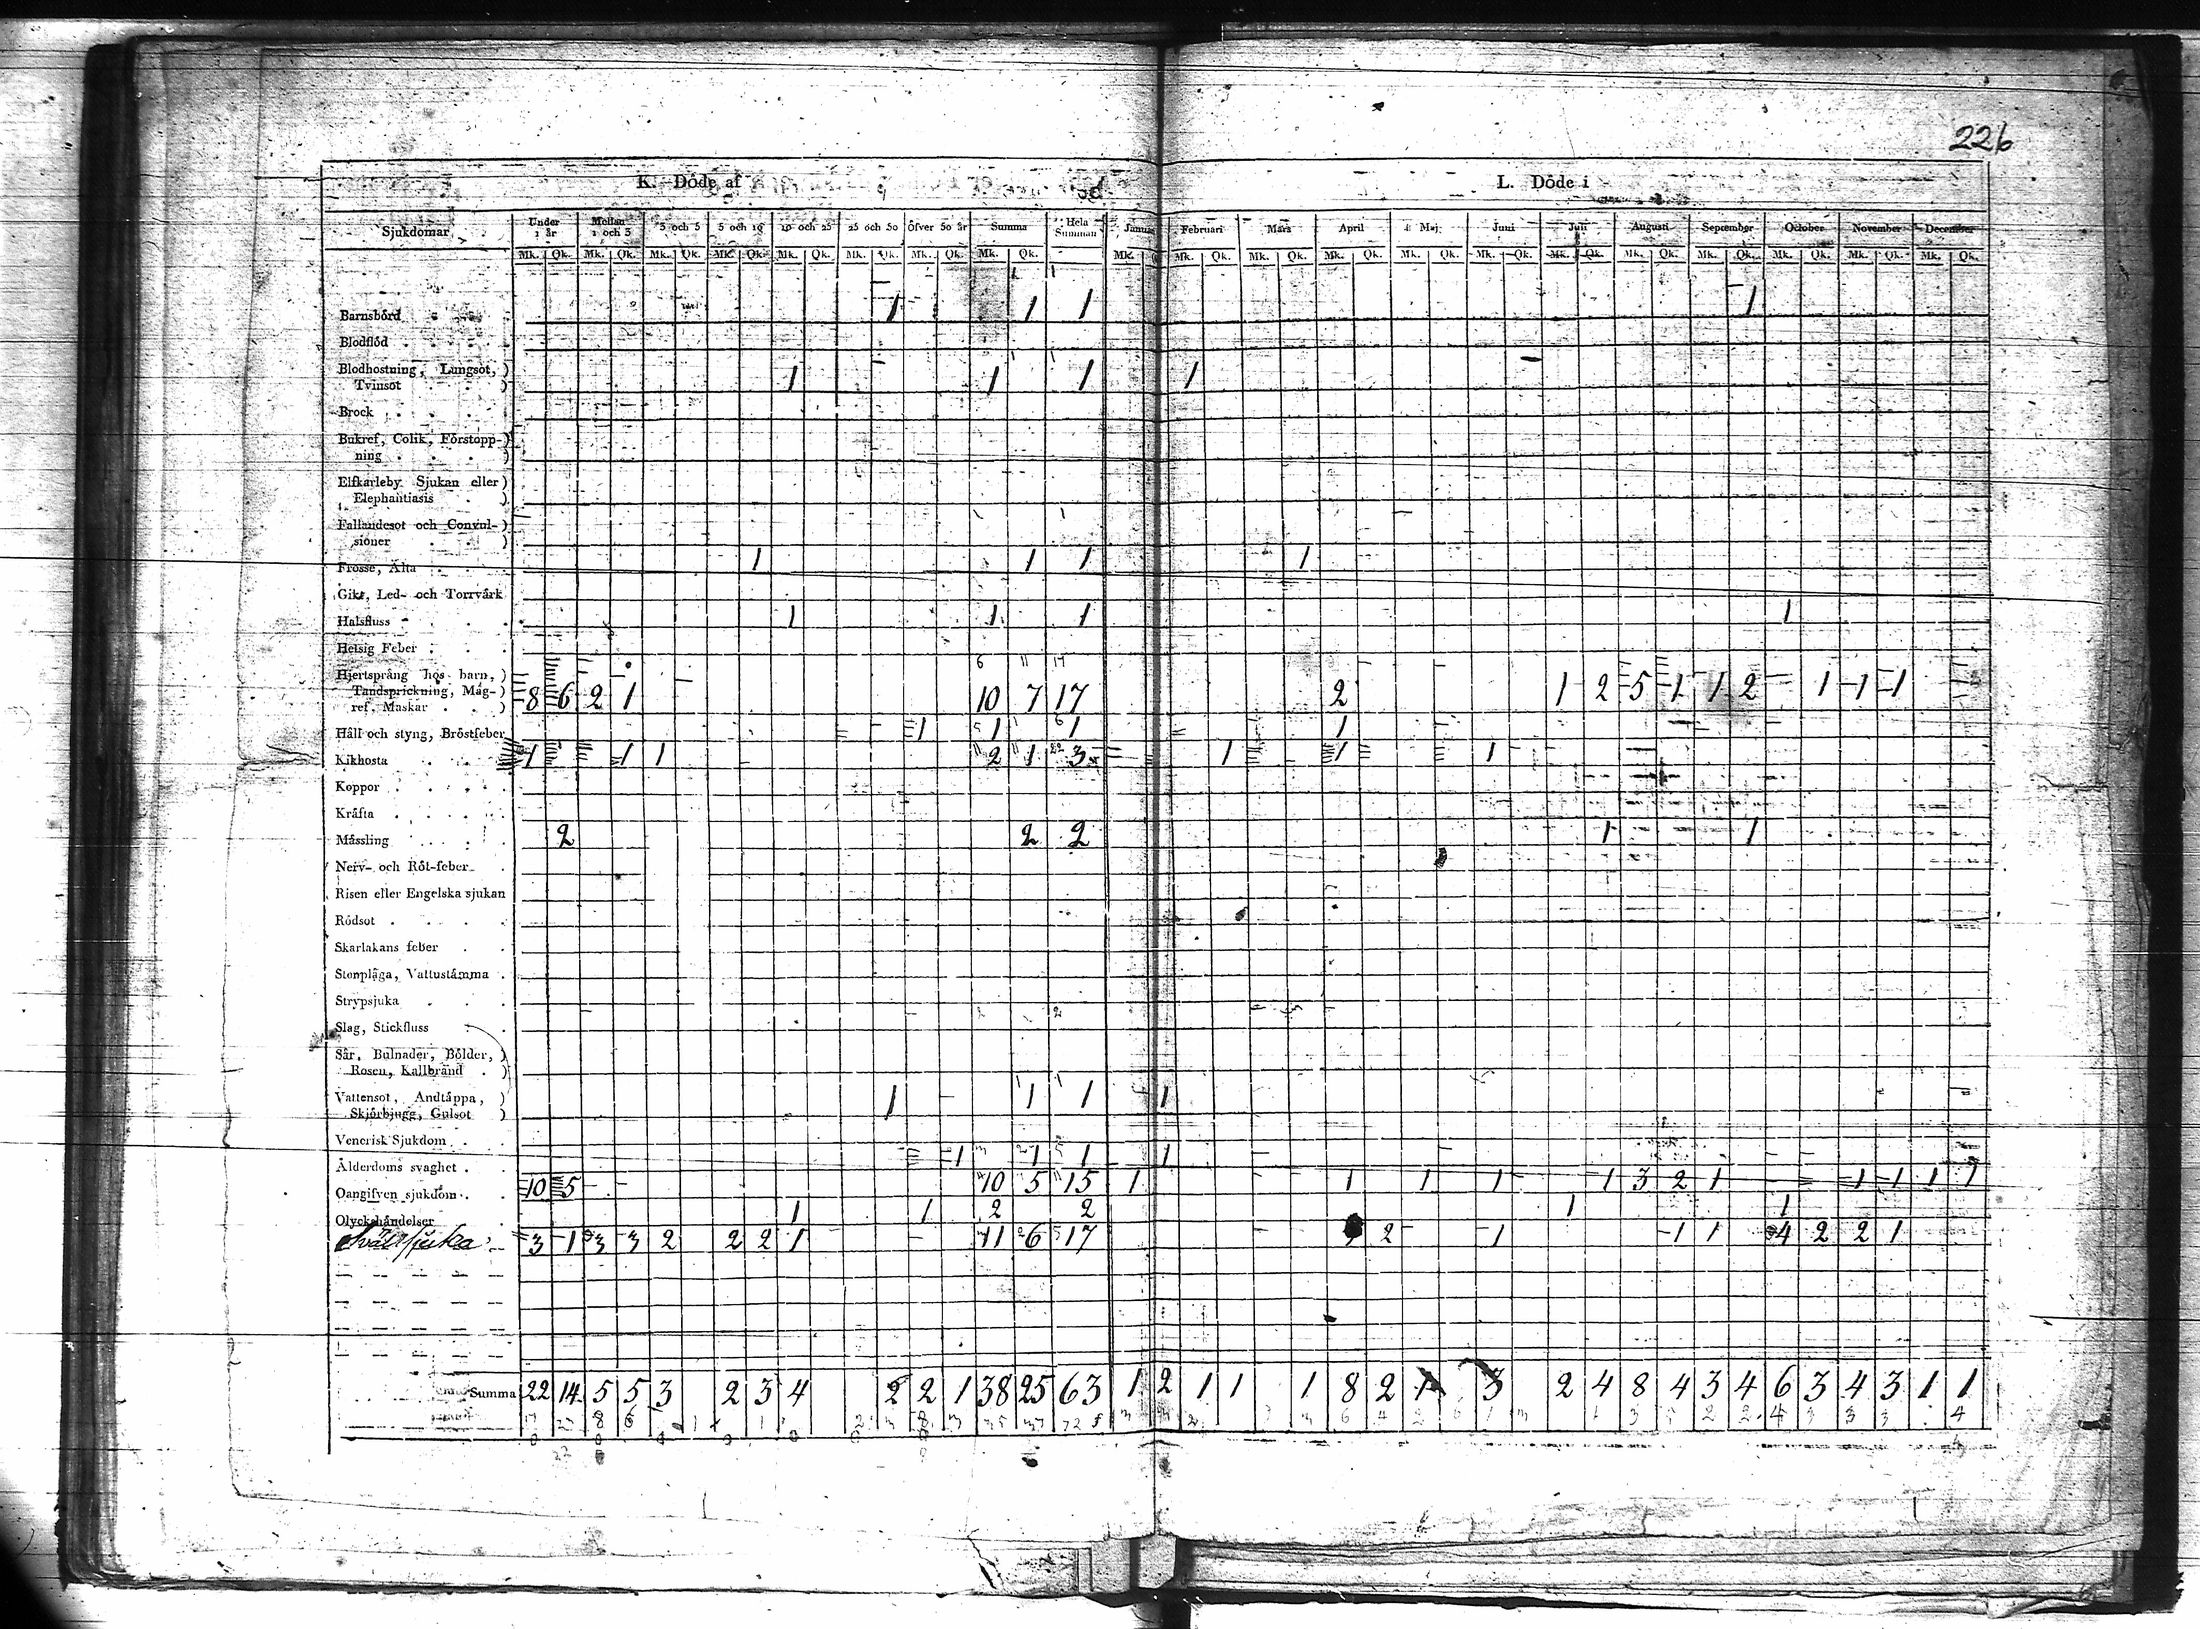 226
K. Döde af
L. Döde i
Sjukdomar Under 1 år Mellan 1 och 3 3 och 5 5 och 10 10 och 25 25 och 50 Öfver 50 år Summa Hela Summan Januari Februari Mars April Maj Juni Juli Augusti September October November December
Mk. Qk. Mk. Qk. Mk. Qk. Mk. Qk. Mk. Qk. Mk. Qk. Mk. Qk. Mk. Qk. Mk. Mk. Qk. Mk. Qk. Mk. Qk. Mk. Qk. Mk. Qk. Mk. Qk. Mk. Qk. Mk. Qk. Mk. Qk. Mk. Qk. Mk. Qk.
Barnsbörd 1 1 1 1
Blodflöd
Blodhostning, Lungsot,
Tvinsot 1 1 1 1
Brock
Bukref, Colik, Förstopp-
ning
Elfkarleby Sjukan eller
Elephantiasis
Fallandesot och Convul-
sioner
Frosse, Älta 1 1 1 1
Gikt, Led- och Torrvärk
Halsfluss 1 1 1 1
Hetsig Feber
Hjertsprång hos barn,
Tandsprickning, Mag-
ref, Maskar 8 6 2 1 10 7 17 2 1 2 5 1 1 2 1 1 1
Håll och styng, Bröstfeber 1 1 1 1
Kikhosta 1 1 1 2 1 3 1 1 1
Koppor
Kräfta
Mässling 2 2 2 1 1
Nerv- och Röt-feber
Risen eller Engelska sjukan
Rödsot
Skarlakans feber
Stenplåga, Vattustämma
Strypsjuka
Slag, Stickfluss
Sår, Bulnader, Bölder,
Rosen, Kallbrand
Vattensot, Andtäppa,
Skjörbjugg, Gulsot 1 1 1 1
Venerisk Sjukdom
Ålderdoms svaghet 1 1 1 1
Oangifven sjukdom 10 5 10 5 15 1 1 1 1 1 3 2 1 1 1 1 1
Olyckshändelser 1 1 2 2 1 1
3 1 3 3 2 2 2 1 11 6 17 2 1 1 1 4 2 2 1
Summa 22 14 5 5 3 2 3 4 2 2 1 38 25 63 1 2 1 1 1 8 2 3 2 4 8 4 3 4 6 3 4 3 1 1